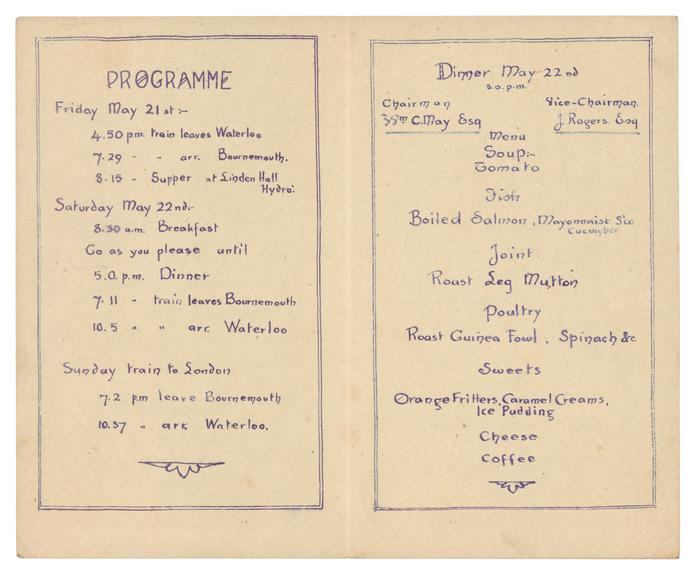 PROGRAMME
Friday May 21st:-
4.50 pm. train leaves Waterloo
7.29 " " arr. Bournemouth.
8.15 - Supper at Linden Hall
Hydro:
Saturday May 22nd:-
8.30 a.m. Breakfast
Go as you please until
5.0. p.m. Dinner
7.11 " train leaves Bournemouth
10.5 " " arr. Waterloo
Sunday train to London
7.2 pm leave Bournemouth
10.37 " arr Waterloo.
Dinner May 22nd
5.0. p.m.
Chairman
C. May Esq
Vice-Chairman.
J. Rogers. Esq
Menu
Soup:-
Tomato
Fish
Boiled Salmon, Mayonnaist Sce
Cucumber
Joint.
Roast Leg Mutton
Poultry
Roast Guinea Fowl. Spinach &c
Sweets
Orange Fritters, Caramel Creams,
Ice Pudding
Cheese
Coffee